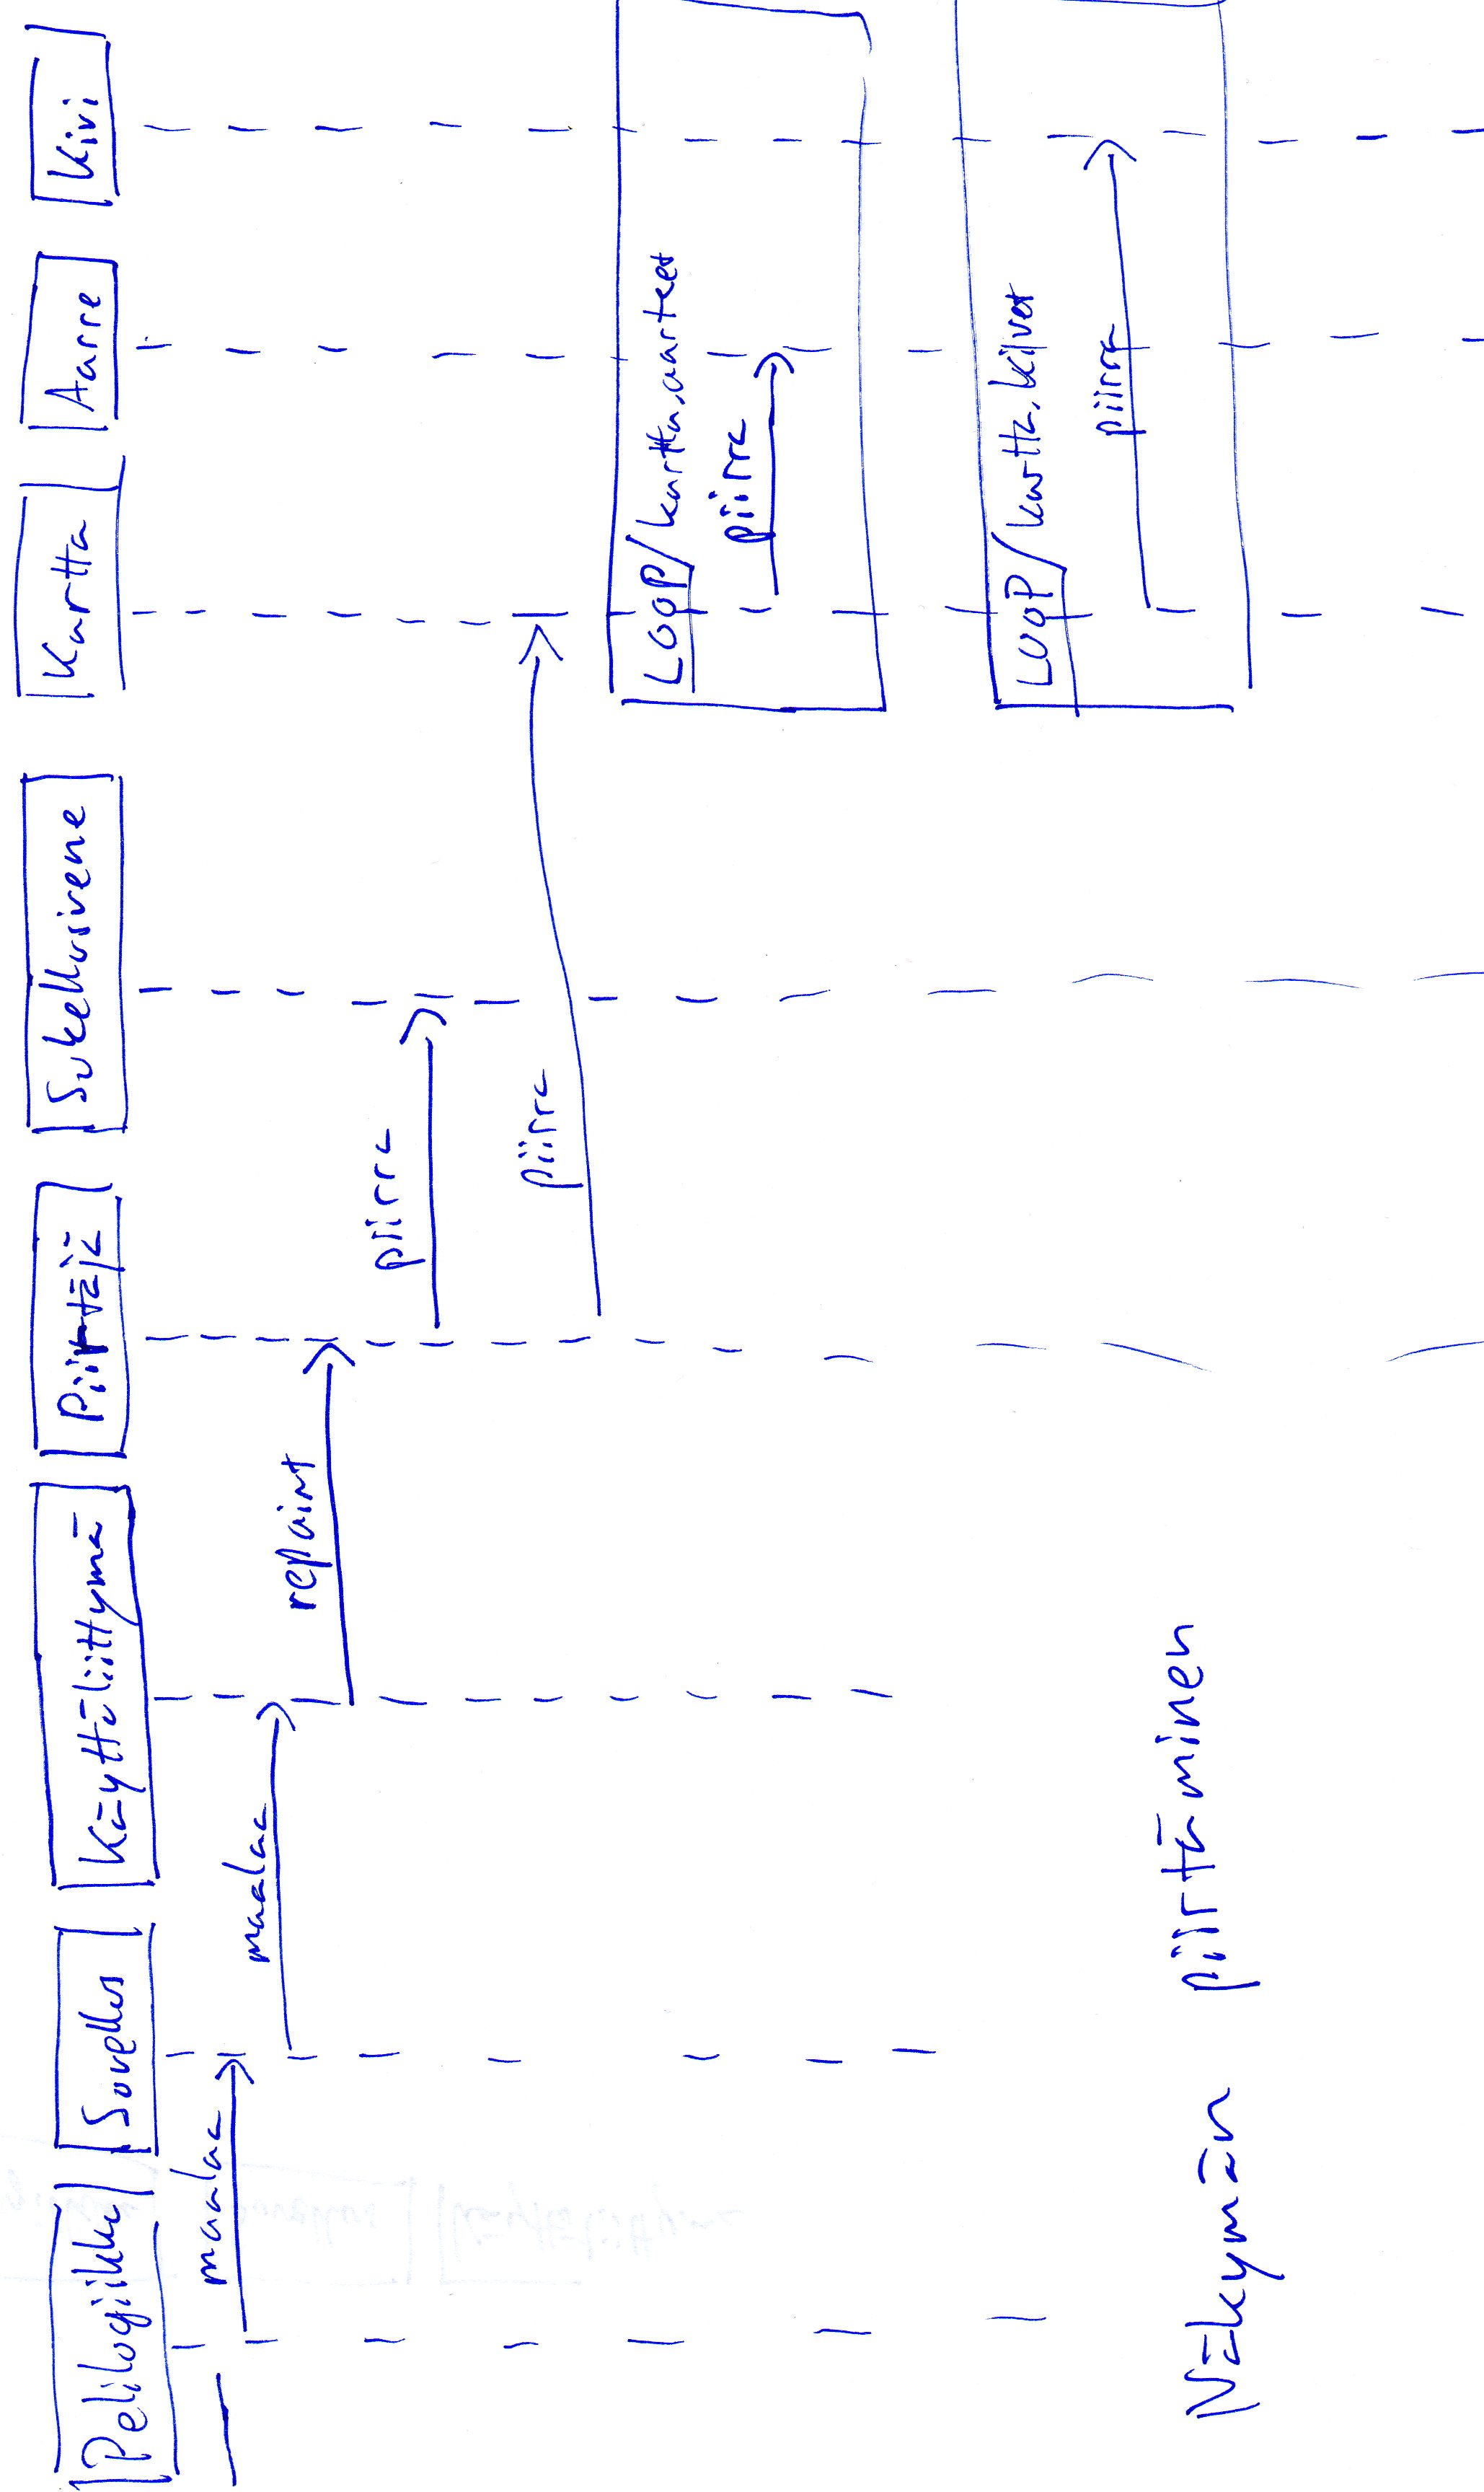 Pelilogiikka
Sovellus
Käyttöliittymä
Piirtäjä
Sukellusvene
Kartta
Aarre
Kivi
maalaa
maalaa
repaint
piirra
piirra
LOOP / kartta.aarteet
piirra
LOOP / kartta.kivet
piirra
Näkymän piirtäminen